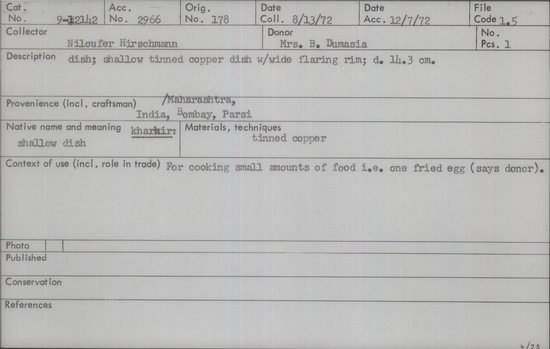 Cat. No. 9-12142 Acc. No. 2966 Orig. No. 178 Date Coll. 8/13/72 Date Acc. 12/7/72 File Code 1.5
Collector Niloufer Hirschmann Donor Mrs. B. Dumasia No. Pcs. 1
Description dish; shallow tinned copper dish w/wide flaring rim; d. 14.3 cm.
Provenience (incl. craftsman) /Maharashtra,
India, Bombay, Parsi
Native name and meaning Materials, techniques
shallow dish tinned copper
Context of use (incl. role in trade) For cooking small amounts of food i.e. one fried egg (says donor).
Photo
Published
Conservation
References
4/75